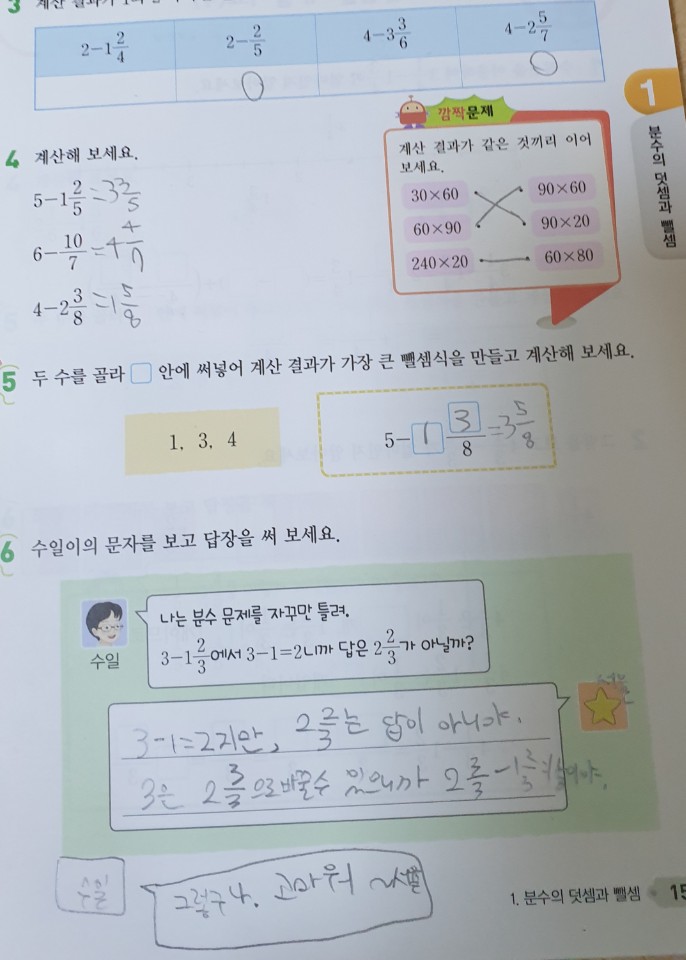 3 계산 결과가
2-1 2/4 2-2/5 4-3 3/6 4-2 5/7
○ ○
1
분수의 덧셈과 뺄셈
4 계산해 보세요.
5-1 2/5 =3 3/5
6-10/7 =4 4/7
4-2 3/8 =1 5/8
깜짝문제
계산 결과가 같은 것끼리 이어
보세요.
30×60 90×60
60×90 90×20
240×20 60×80
5 두 수를 골라 □ 안에 써넣어 계산 결과가 가장 큰 뺄셈식을 만들고 계산해 보세요.
1, 3, 4
5-1 3/8 =3 5/8
6 수일이의 문자를 보고 답장을 써 보세요.
나는 분수 문제를 자꾸만 틀려.
3-1 2/3에서 3-1=2니까 답은 2 2/3가 아닐까?
수일
3-1=2지만, 2 2/3는 답이 아니야.
3은 2 3/3으로바꿀수 있으니까 2 3/3-1 2/3
수일
그렇구나. 고마워
1. 분수의 덧셈과 뺄셈 15